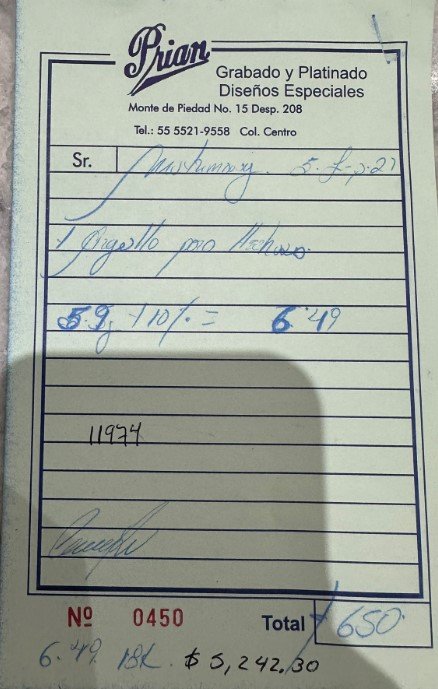 Prian
Grabado y Platinado
Diseños Especiales
Monte de Piedad No. 15 Desp. 208
Tel.: 55 5521-9558 Col. Centro
Sr.
1 para
5.9g +10% = 6.49
11974
Nº 0450 Total 650.
6.49 18K. $5,242.30